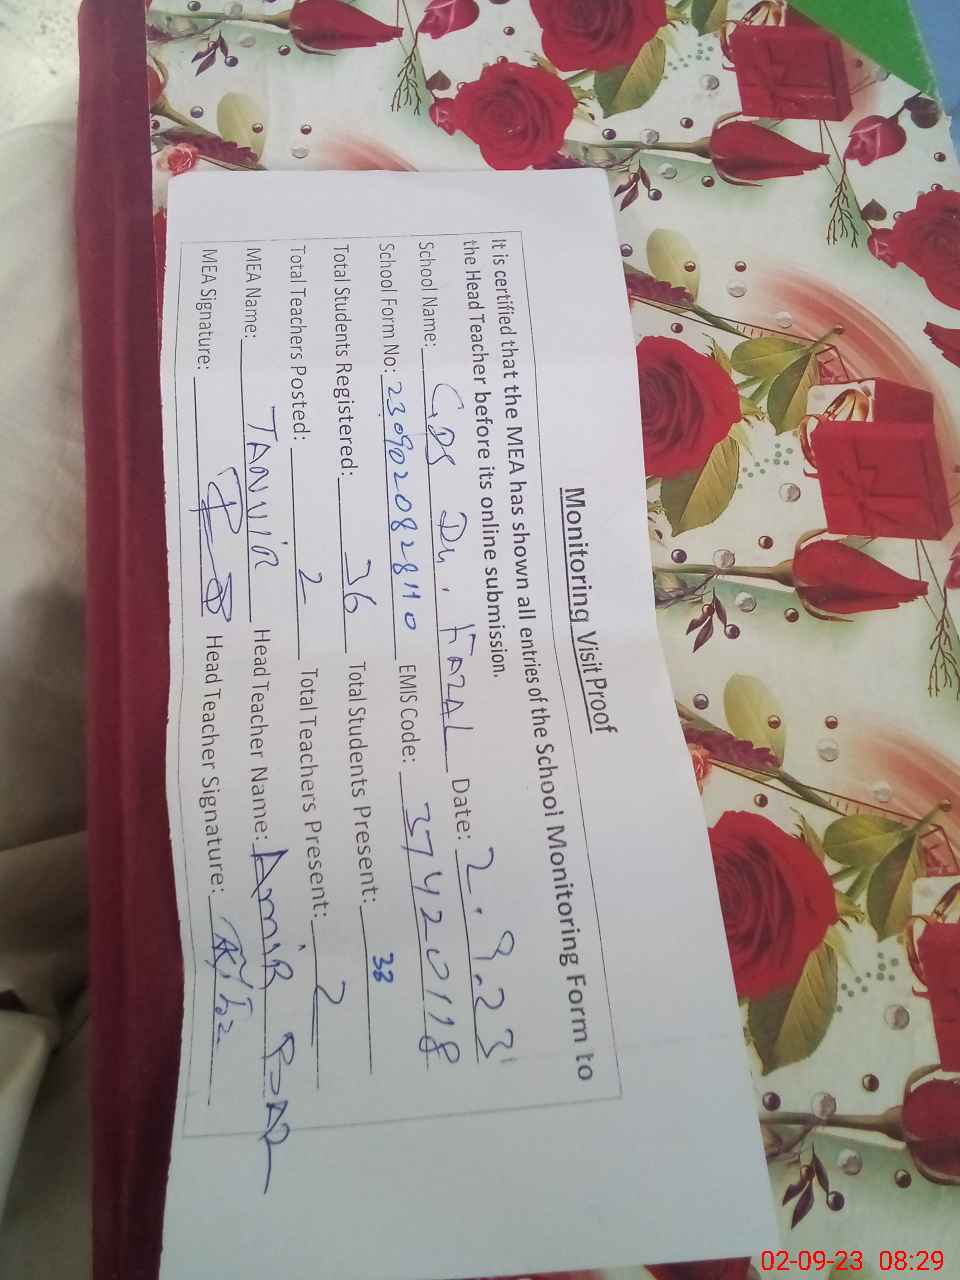 Monitoring Visit Proof
It is certified that the MEA has shown all entries of the School Monitoring Form to
the Head Teacher before its online submission.
School Name: GPS Dr. FAZAL Date: 2.9.23
School Form No: 2309020828110 EMIS Code: 37420118
Total Students Registered: 36 Total Students Present: 33
Total Teachers Posted: 2 Total Teachers Present: 2
MEA Name: TANVIR Head Teacher Name: AMIR
MEA Signature: Head Teacher Signature:
02-09-23 08:29